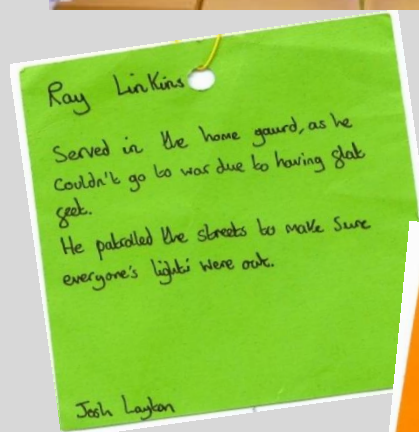 Ray Linkins
Served in the home gaurd, as he
couldn't go to war due to having flat
feet.
He patrolled the streets to make sure
everyone's lights were out.
Josh Layton